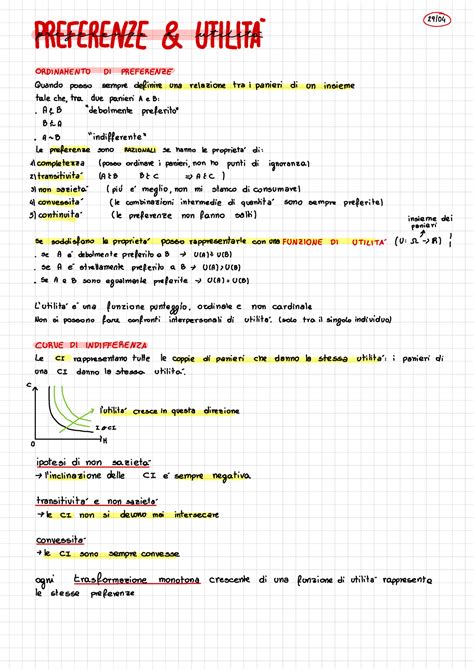 29/04
PREFERENZE & UTILITA'
ORDINAMENTO DI PREFERENZE
Quando posso sempre definire una relazione tra i panieri di un insieme
tale che, tra due panieri A e B:
. A ≿ B "debolmente preferito"
B ≿ A
. A ~ B "indifferente"
Le preferenze sono RAZIONALI se hanno le proprieta' di:
1) completezza (posso ordinare i panieri, non ho punti di ignoranza)
2) transitivita' (A ≿ B B ≿ C => A ≿ C )
3) non sazieta' ( piu' e' meglio, non mi stanco di consumare)
4) convessita' ( le combinazioni intermedie di quantita' sono sempre preferite)
5) continuita' (le preferenze non fanno salti)
insieme dei
panieri
Se soddisfano le proprieta' posso rappresentarle con una FUNZIONE DI UTILITA' (U: Ω → R)
. se A e' debolmente preferito a B → U(A) ≥ U(B)
. se A e' strettamente preferito a B → U(A) > U(B)
. se A e B sono egualmente preferite → U(A) = U(B)
L'utilita' e' una funzione punteggio, ordinale e non cardinale
Non si possono fare confronti interpersonali di utilita'. (solo tra il singolo individuo)
CURVE DI INDIFFERENZA
Le CI rappresentano tutte le coppie di panieri che danno la stessa utilita': i panieri di
una CI danno la stessa utilita'.
C
l'utilita' cresce in questa direzione
O
H
ipotesi di non sazieta'
→ l'inclinazione delle CI e' sempre negativa
transitivita' e non sazieta'
→ le CI non si devono mai intersecare
convessita'
→ le CI sono sempre convesse
ogni trasformazione monotona crescente di una funzione di utilita' rappresenta
le stesse preferenze